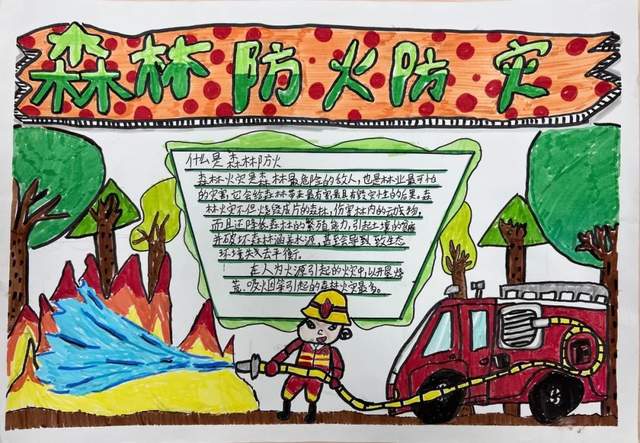 森林防火防灾
什么是森林防火
森林火灾是森林最危险的敌人,也是林业最可怕
的灾害,它会给森林带来最有害最具有毁灭性的后果。森
林火灾不但烧毁成片的森林,伤害林内的动植物,
而且还降低森林的繁殖能力,引起土壤的
并破坏森林涵养水源,甚至会导致生态
环境失去平衡。
在人为火源引起的火灾中,以开垦烧
荒、吸烟等引起的森林火灾最多。